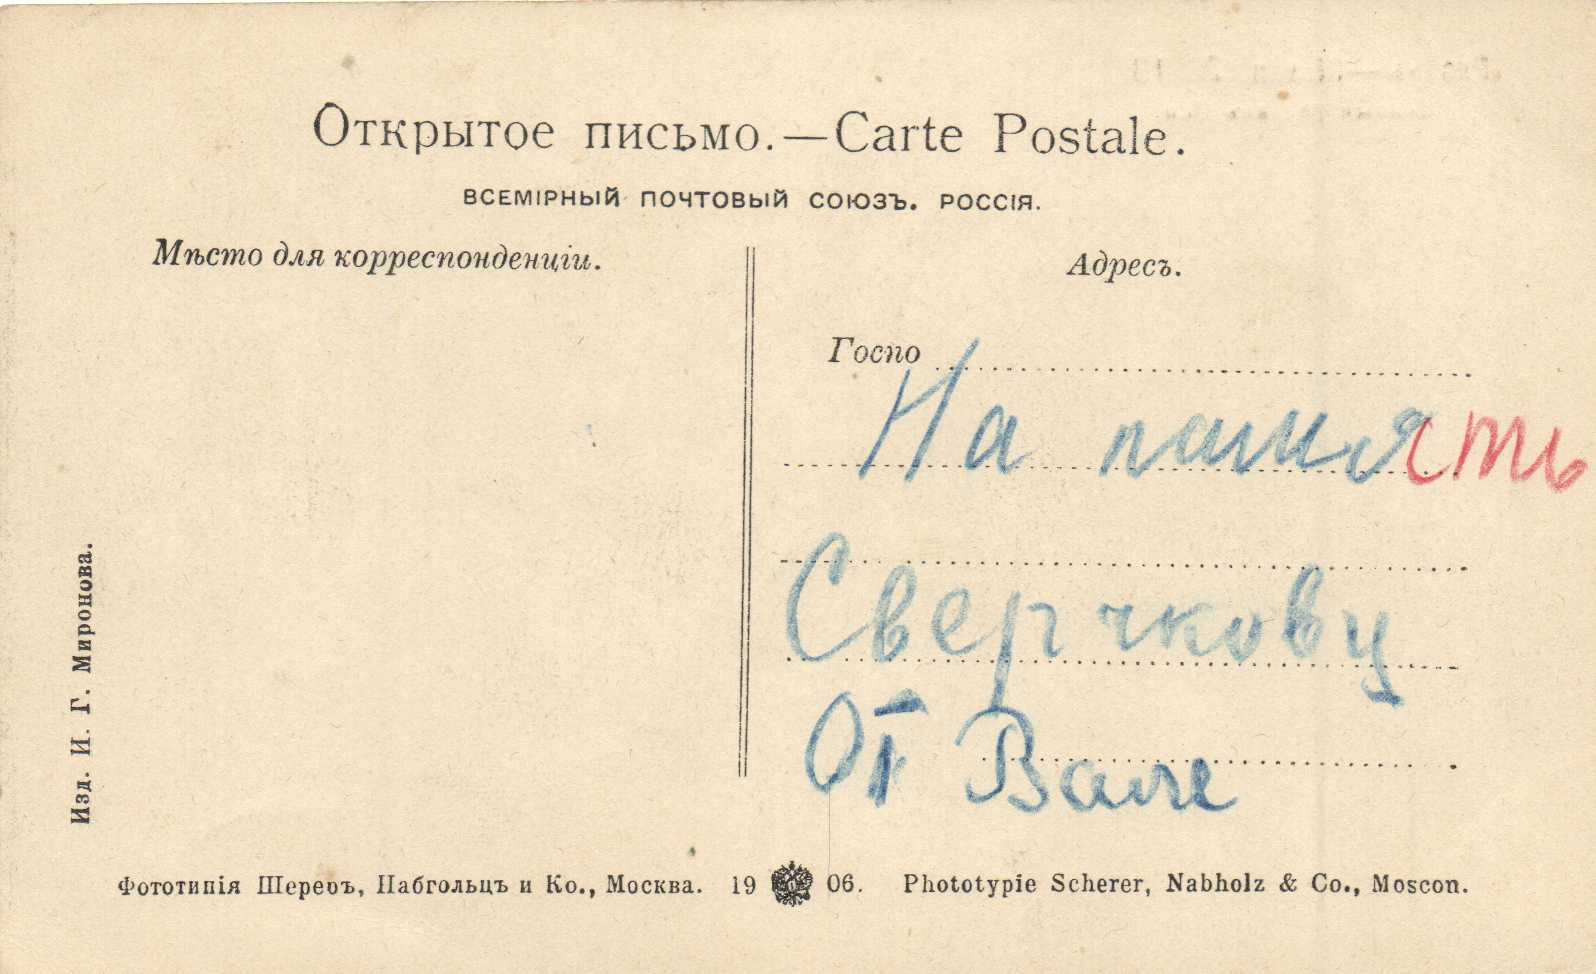 Открытое письмо.—Carte Postale.
ВСЕМІРНЫЙ ПОЧТОВЫЙ СОЮЗЪ. РОССІЯ.
Мѣсто для корреспонденціи.
Адресъ.
Госпо
На память
Сверчкову
От Вале
Изд. И. Г. Миронова.
Фототипія Шереръ, Набгольцъ и Ко., Москва. 19 06. Phototypie Scherer, Nabholz & Co., Moscou.